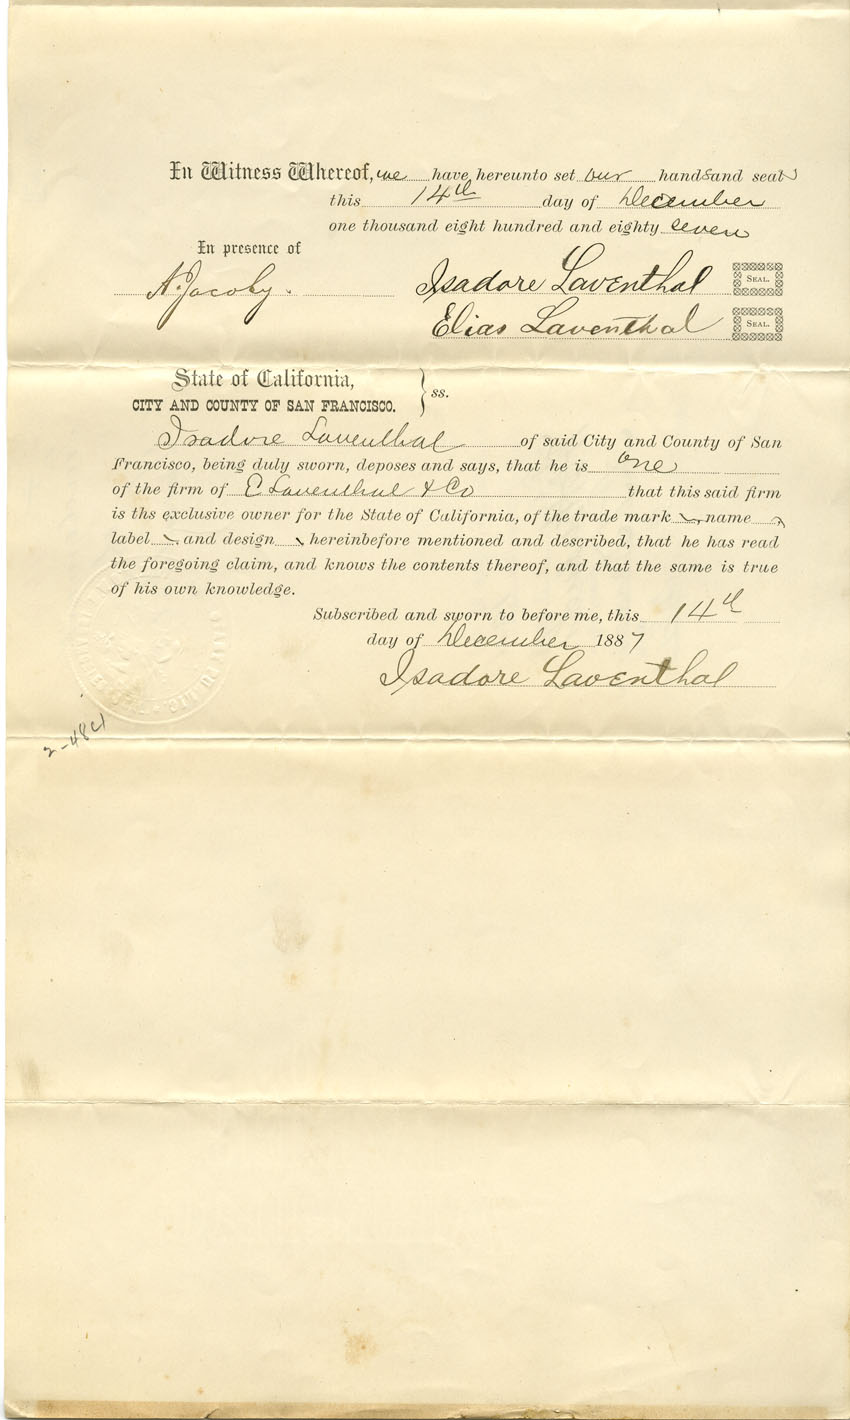 In Witness Whereof, we have hereunto set our hands and seals
this 14th day of December
one thousand eight hundred and eighty seven
In presence of
A. Jacoby. Isadore Laventhal SEAL.
Elias Laventhal SEAL.
State of California,
CITY AND COUNTY OF SAN FRANCISCO. } ss.
Isadore Laventhal of said City and County of San
Francisco, being duly sworn, deposes and says, that he is one
of the firm of E Laventhal & Co that this said firm
is ths exclusive owner for the State of California, of the trade mark name
label and design hereinbefore mentioned and described, that he has read
the foregoing claim, and knows the contents thereof, and that the same is true
of his own knowledge.
Subscribed and sworn to before me, this 14th
day of December 1887
Isadore Laventhal